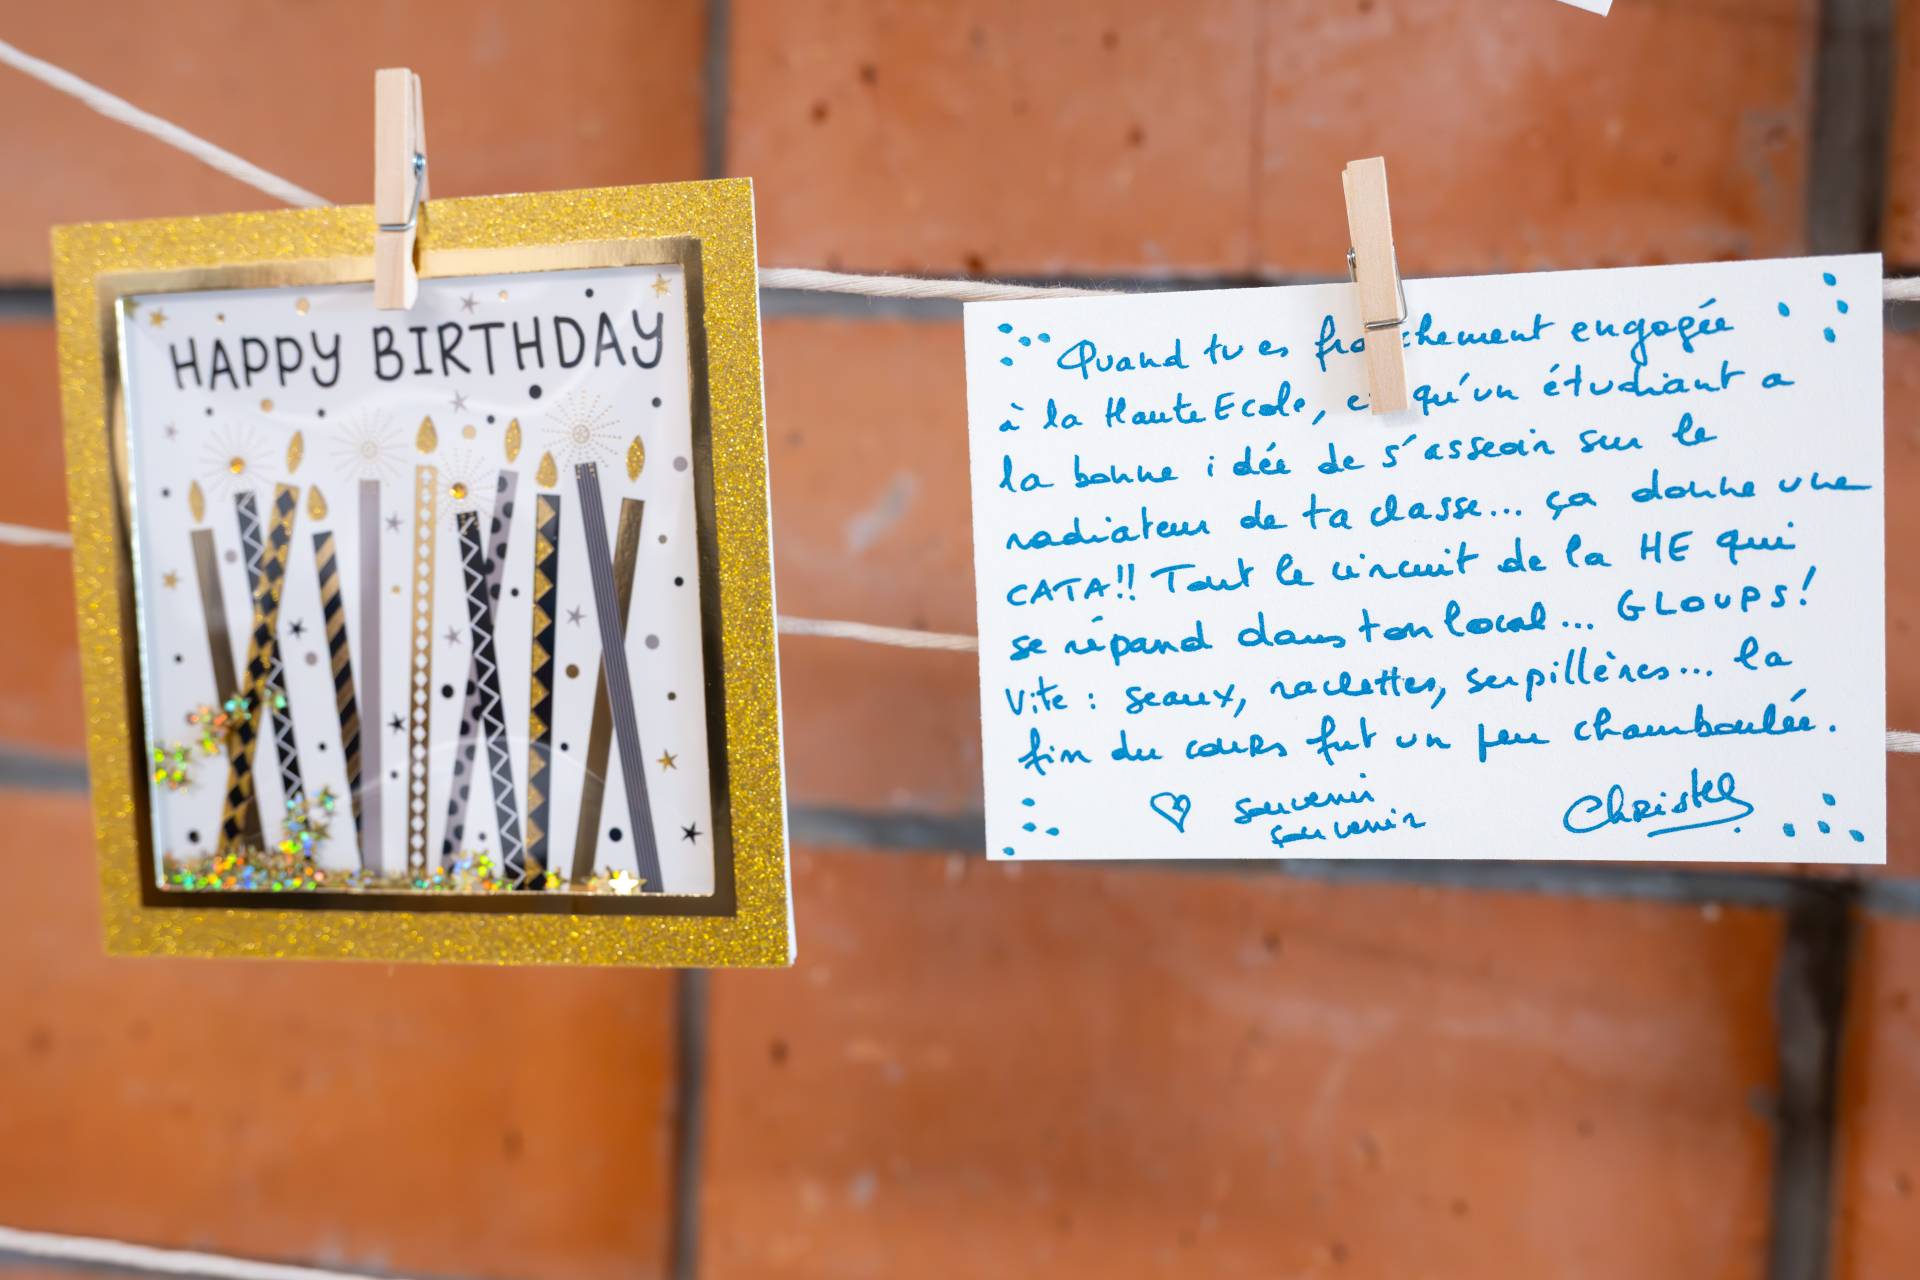 HAPPY BIRTHDAY
Quand tu es fraîchement engagée
à la Haute Ecole, et qu'un étudiant a
la bonne idée de s'asseoir sur le
radiateur de ta classe... ça donne une
CATA!! Tout le circuit de la HE qui
se répand dans ton local... GLOUPS!
Vite : seaux, raclettes, serpillères... la
fin du cours fut un peu chamboulée.
souvenir
souvenir
Christel